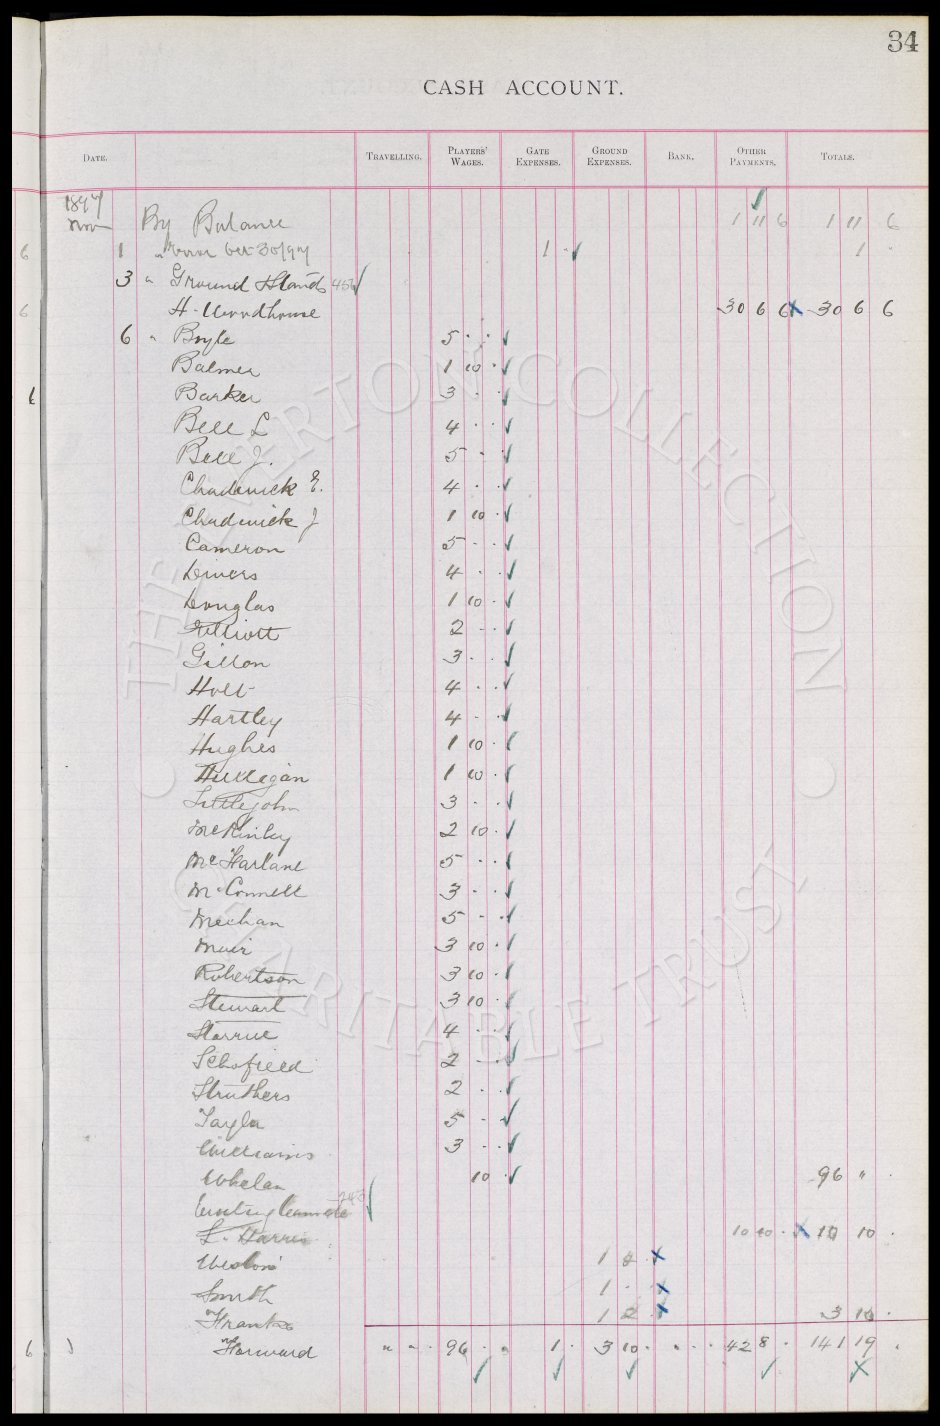 34
CASH ACCOUNT.
DATE. TRAVELLING. PLAYERS' WAGES. GATE EXPENSES. GROUND EXPENSES. BANK. OTHER PAYMENTS. TOTALS.
1897
Nov By Balance 1 11 6 1 11 6
6 1 " Oct 30/97 1 . 1
3 " Ground & Stands
6 H. Woodhouse 30 6 6 30 6 6
6 " Boyle 5 . .
Balmer 1 10 .
6 Barker 3 . .
Bell L 4 . .
Bell J. 5 . .
Chadwick E. 4 . .
Chadwick J 1 10 .
Cameron 5 . .
Divers 4 . .
Douglas 1 10 .
Elliott 2 . .
Gillon 3 . .
Holt 4 . .
Hartley 4 . .
Hughes 1 10 .
Hulligan 1 10 .
Littlejohn 3 . .
McKinley 2 10 .
McFarlane 5 . .
McConnell 3 . .
Meehan 5 . .
Muir 3 10 .
Robertson 3 10 .
Stewart 3 10 .
Storrie 4 . .
Schofield 2 . .
Struthers 2 . .
Taylor 5 . .
Williams 3 . .
Whelan 10 . 96 " .
L. Harris 10 10 . 10 10 .
Weston 1 8 .
Smith 1 . .
Franks 1 2 . 3 10 .
6 Forward " " . 96 . " 1 . 3 10 . " . . 42 8 . 141 19 .
THE EVERTON COLLECTION
CHARITABLE TRUST